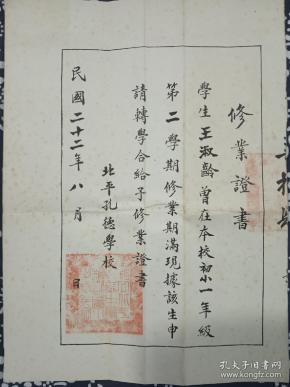 修業證書
學生王淑齡曾在本校初小一年級
第二學期修業期滿現據該生申
請轉學合給予修業證書
北平孔德學校
民國二十二年八月 日
孔夫子旧书网
www.kongfz.com